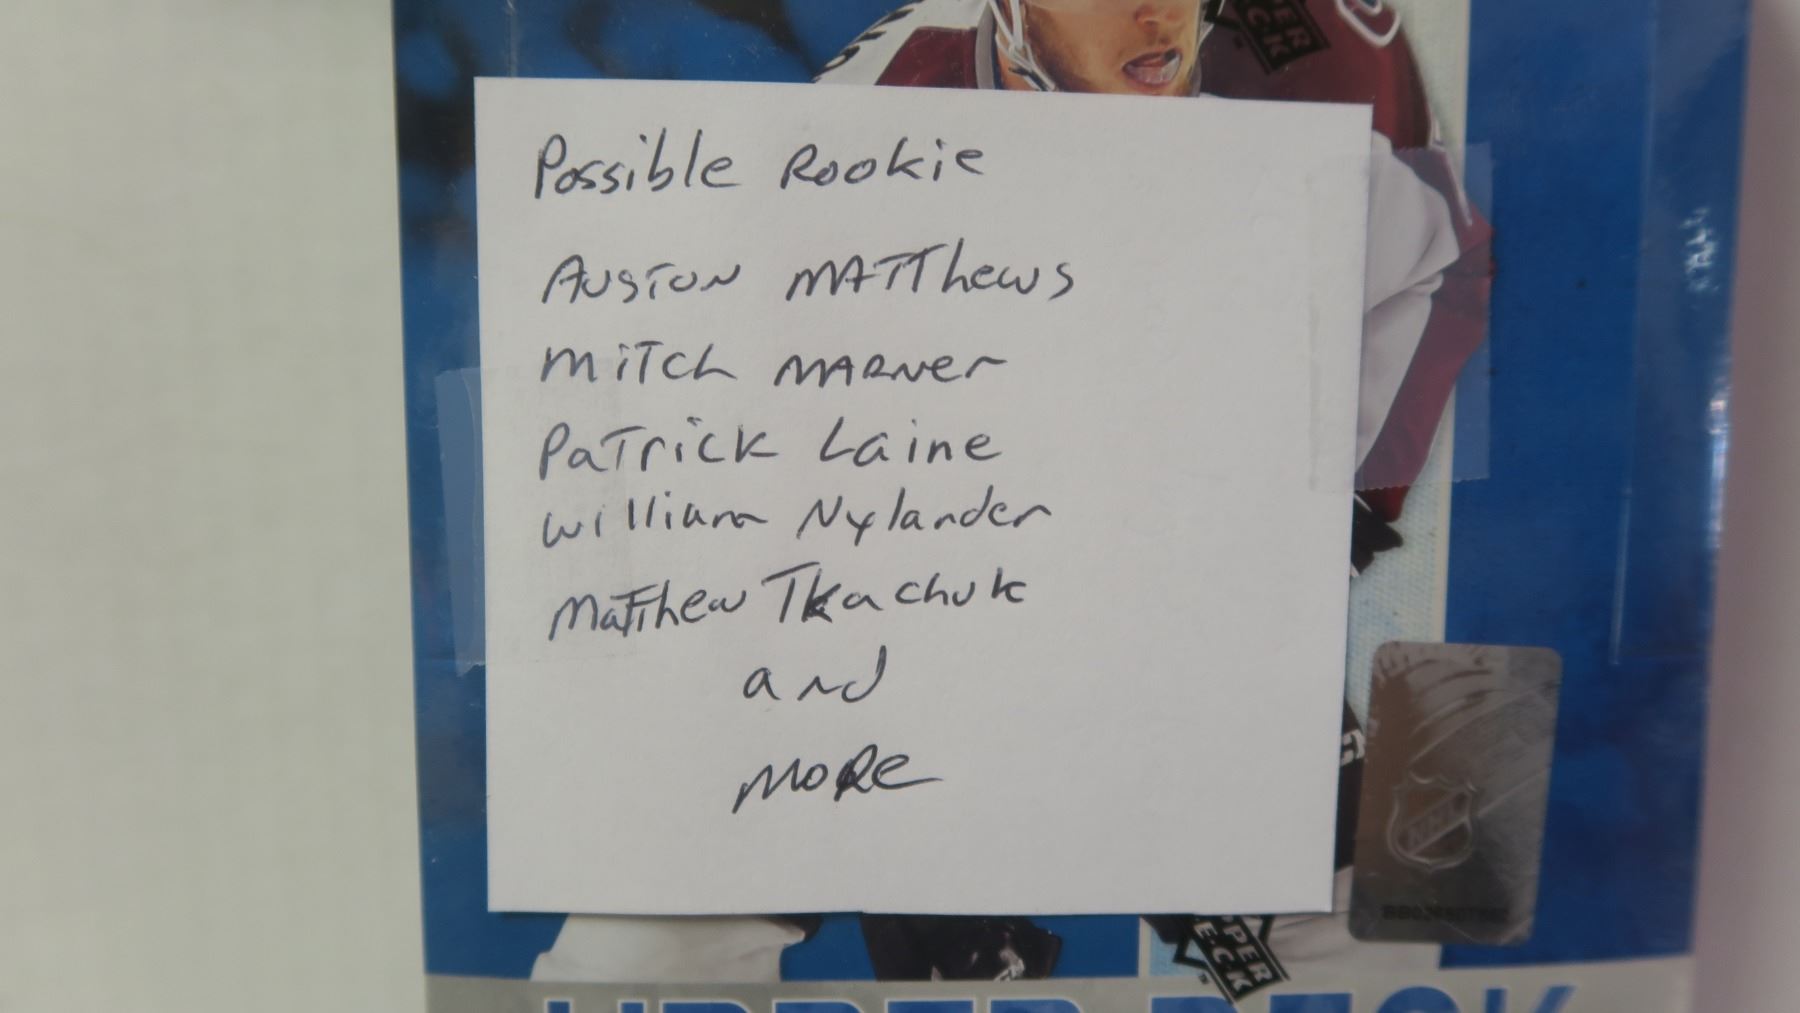 Possible Rookie
Auston Matthews
Mitch Marner
Patrick Laine
William Nylander
Matthew Tkachuk
and
More
NHL
UPPER DECK